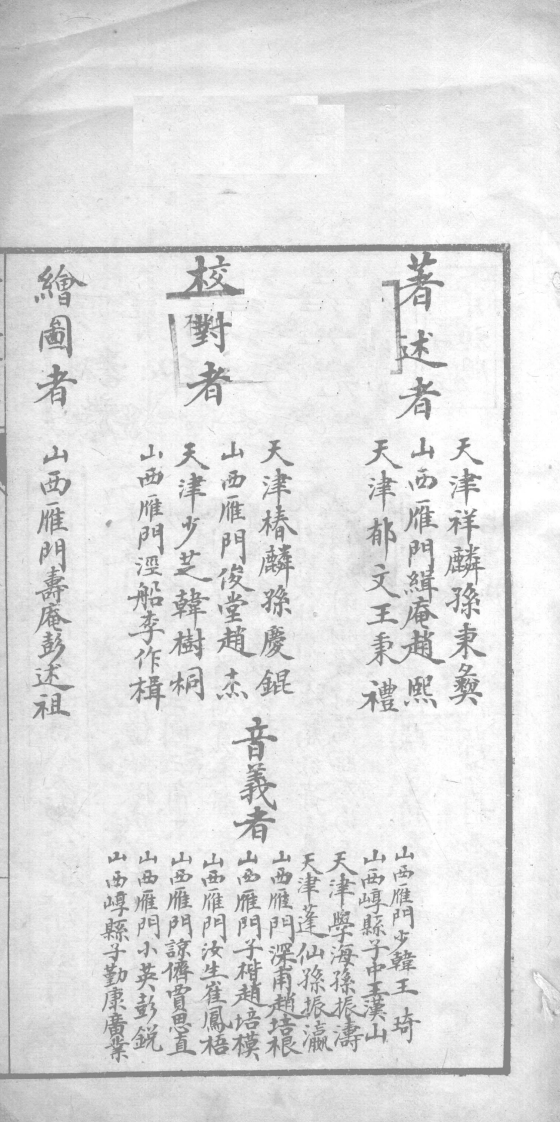 著述者
天津祥麟孫秉彝
山西雁門緝庵趙熙
天津郁文王秉禮
校對者
天津椿麟孫慶錕
山西雁門俊堂趙杰
天津少芝韓樹桐
山西雁門涇船李作楫
音義者
山西雁門少韓王琦
山西崞縣子中王漢山
天津學海孫振濤
天津蓬仙孫振瀛
山西雁門深甫趙培根
山西雁門子楷趙培模
山西雁門汝生崔鳳梧
山西雁門諒儕賈思直
山西雁門小英彭銳
山西崞縣子勤康廣業
繪圖者
山西雁門壽庵彭述祖